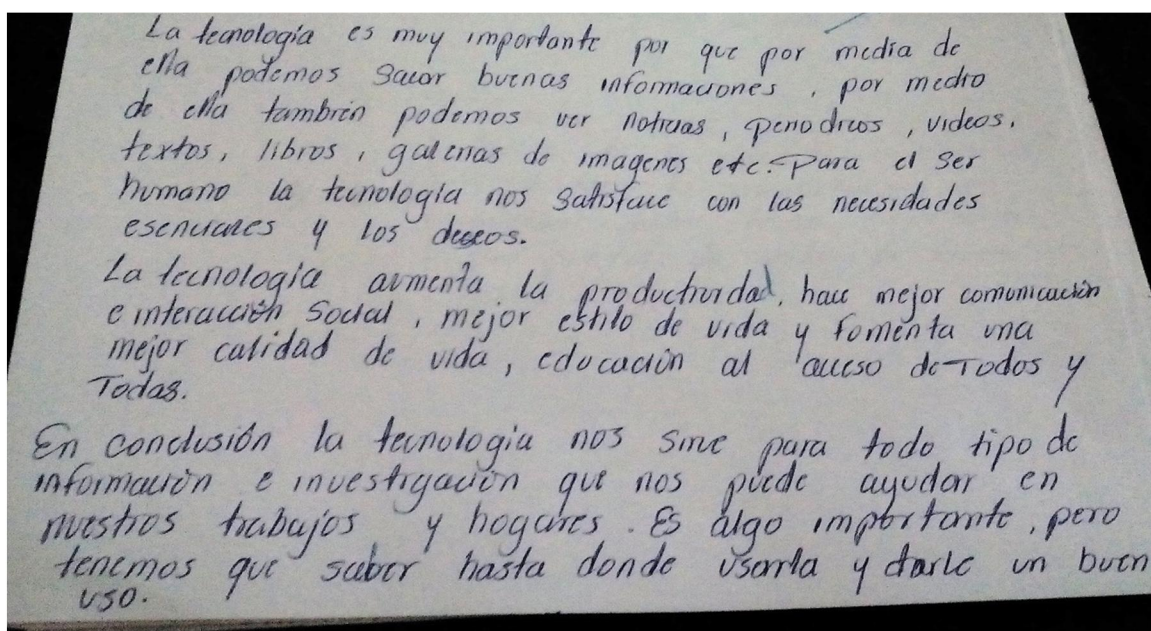 La tecnologia es muy importante por que por media de
ella podemos sacar buenas informaciones, por medio
de ella tambien podemos ver noticias, periodicos, videos,
textos, libros, galerias de imagenes etc. Para el ser
humano la tecnologia nos satisface con las necesidades
esenciales y los deseos.
La tecnologia aumenta la productividad, hace mejor comunicación
e interacción Social, mejor estilo de vida y fomenta una
mejor calidad de vida, educación al acceso de Todos y
Todas.
En conclusión la tecnologia nos sirve para todo tipo de
información e investigación que nos puede ayudar en
nuestros trabajos y hogares. Es algo importante, pero
tenemos que saber hasta donde usarla y darle un buen
uso.